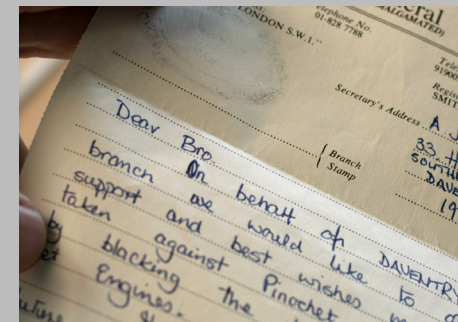 eral
AMALGAMATED)
LONDON S.W.1."
Telephone No.
01-828 7788
Tele
91900
Regist
SMIT
Secretary's Address A J
33. H
SOUTH
DAVE
19
Branch
Stamp
Dear Bro.
On behalf of DAVENTRY
branch we would like to
support and best wishes
taken against Pinochet
by blacking the
Engines.